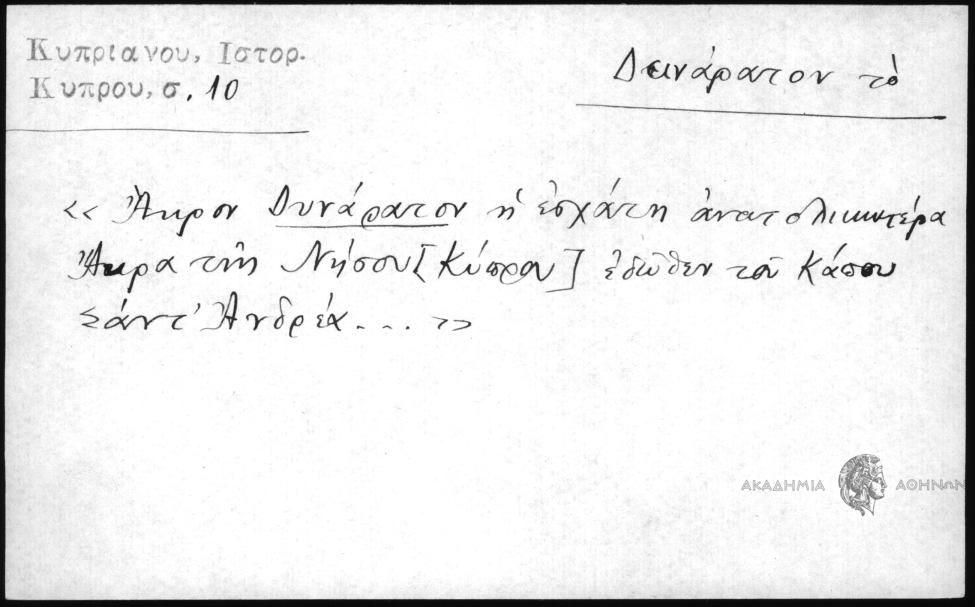 Κυπριανου, Ιστορ.
Κυπρου, σ. 10
Δεινάρατον τὸ
<< Ἄκρον Δυνάρατον ἡ ἐσχάτη ἀνατολικωτέρα
Ἄκρα τῆς Νήσου [Κύπρου] ἐδῶθεν τοῦ Κάπου
Σάντ' Ἀνδρέα.... >>
ΑΚΑΔΗΜΙΑ ΑΘΗΝΩΝ